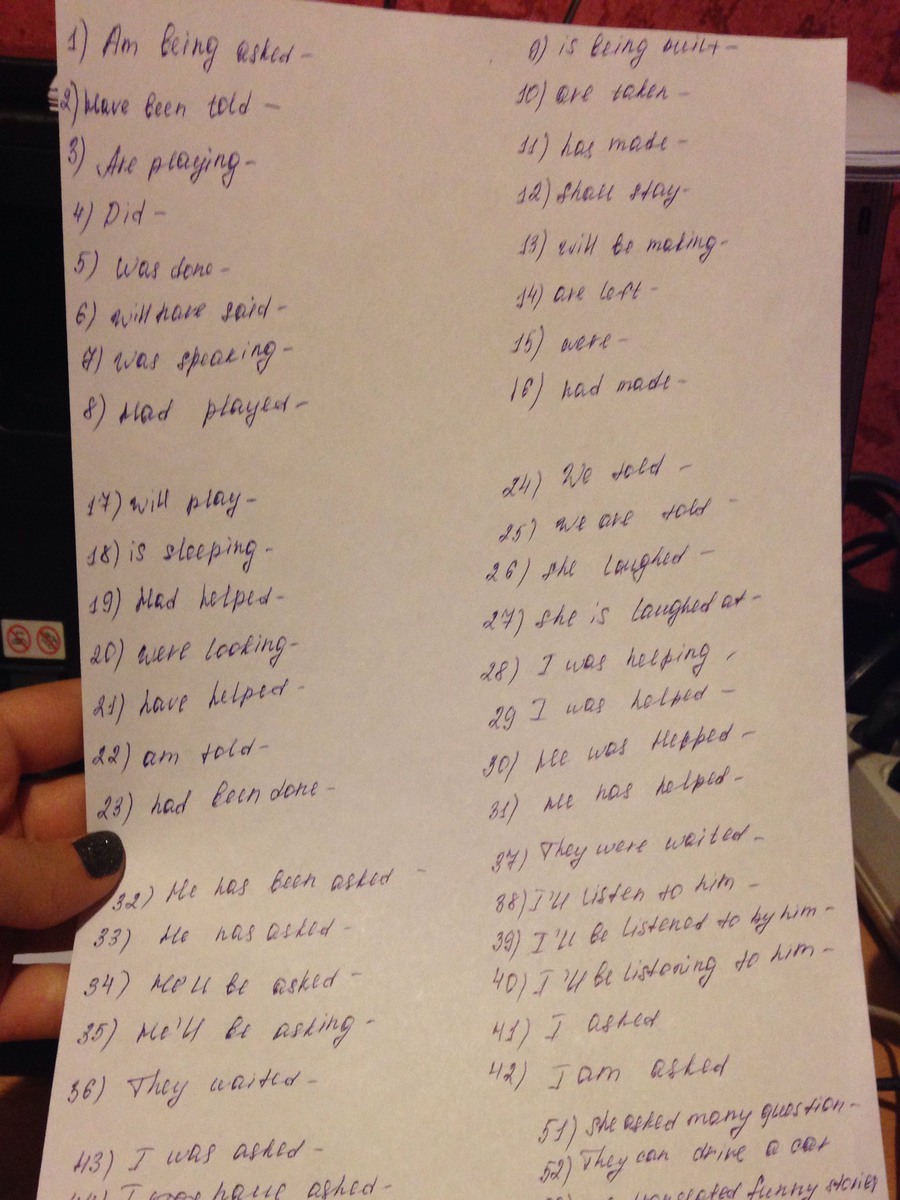 1) Am being asked -
2) Have been told -
3) Are playing -
4) Did -
5) Was done -
6) will have said -
7) Was speaking -
8) Had played -
9) is being built -
10) are taken -
11) has made -
12) Shall stay -
13) will be making -
14) are left -
15) were -
16) had made -
17) will play -
18) is sleeping -
19) Had helped -
20) were looking -
21) have helped -
22) am told -
23) had been done -
24) We told -
25) We are told -
26) She laughed -
27) She is laughed at -
28) I was helping -
29 I was helped -
30) He was Helped -
31) He has helped -
32) He has been asked -
33) He has asked -
34) He'll be asked -
35) He'll be asking -
36) They waited -
37) They were waited -
38) I'll listen to him -
39) I'll be listened to by him -
40) I'll be listening to him -
41) I asked
42) I am asked
43) I was asked -
I have asked -
51) She asked many question -
52) They can drive a car
translated funny stories